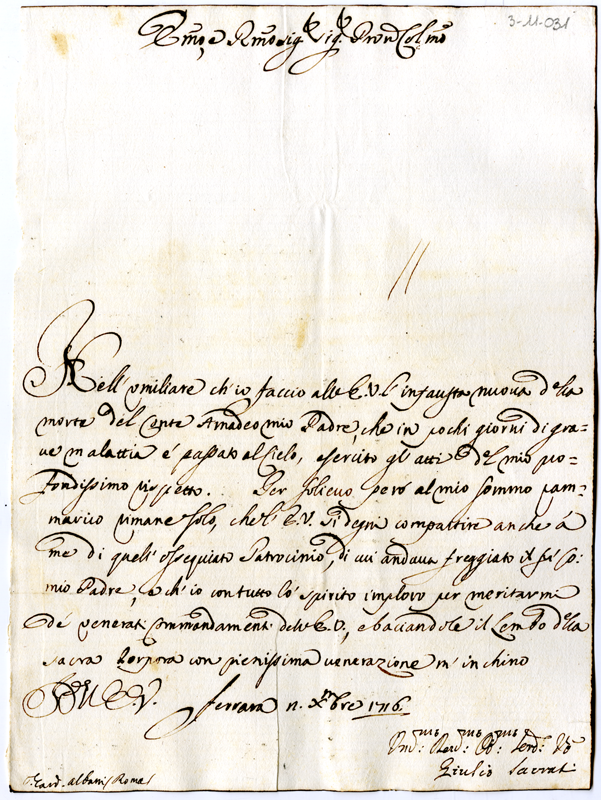 3-11-031
Em̃o e Rm̃o Sig.r Sig. Pron Col.mo
Nell' umiliare ch' io faccio alle E. V. l' infausta nuova della
morte del Conte Amadeo mio Padre, che in pochi giorni di gra=
ve malattia é passato al Cielo, esercito gl' atti del mio pro=
fondissimo rispetto. Per solievo peró al mio sommo ram=
marico rimane solo, che l' E. V. si degni compartire anche á
me di quell' ossequiato Patrocinio, di cui andava freggiato il fú Co:
mio Padre, e ch' io con tutto lo spirito imploro per meritarmi
de venerati Commandamenti dell' E. V., e baciandole il Lembo della
Sacra Porpora con pienissima venerazione m' inchino
Di V. E. V. Ferrara n. Xmbre 1716
Um:mo Dev:mo Ob:mo Serv: Vo
Giulio Sacrati
S. Card. Albani / Roma /